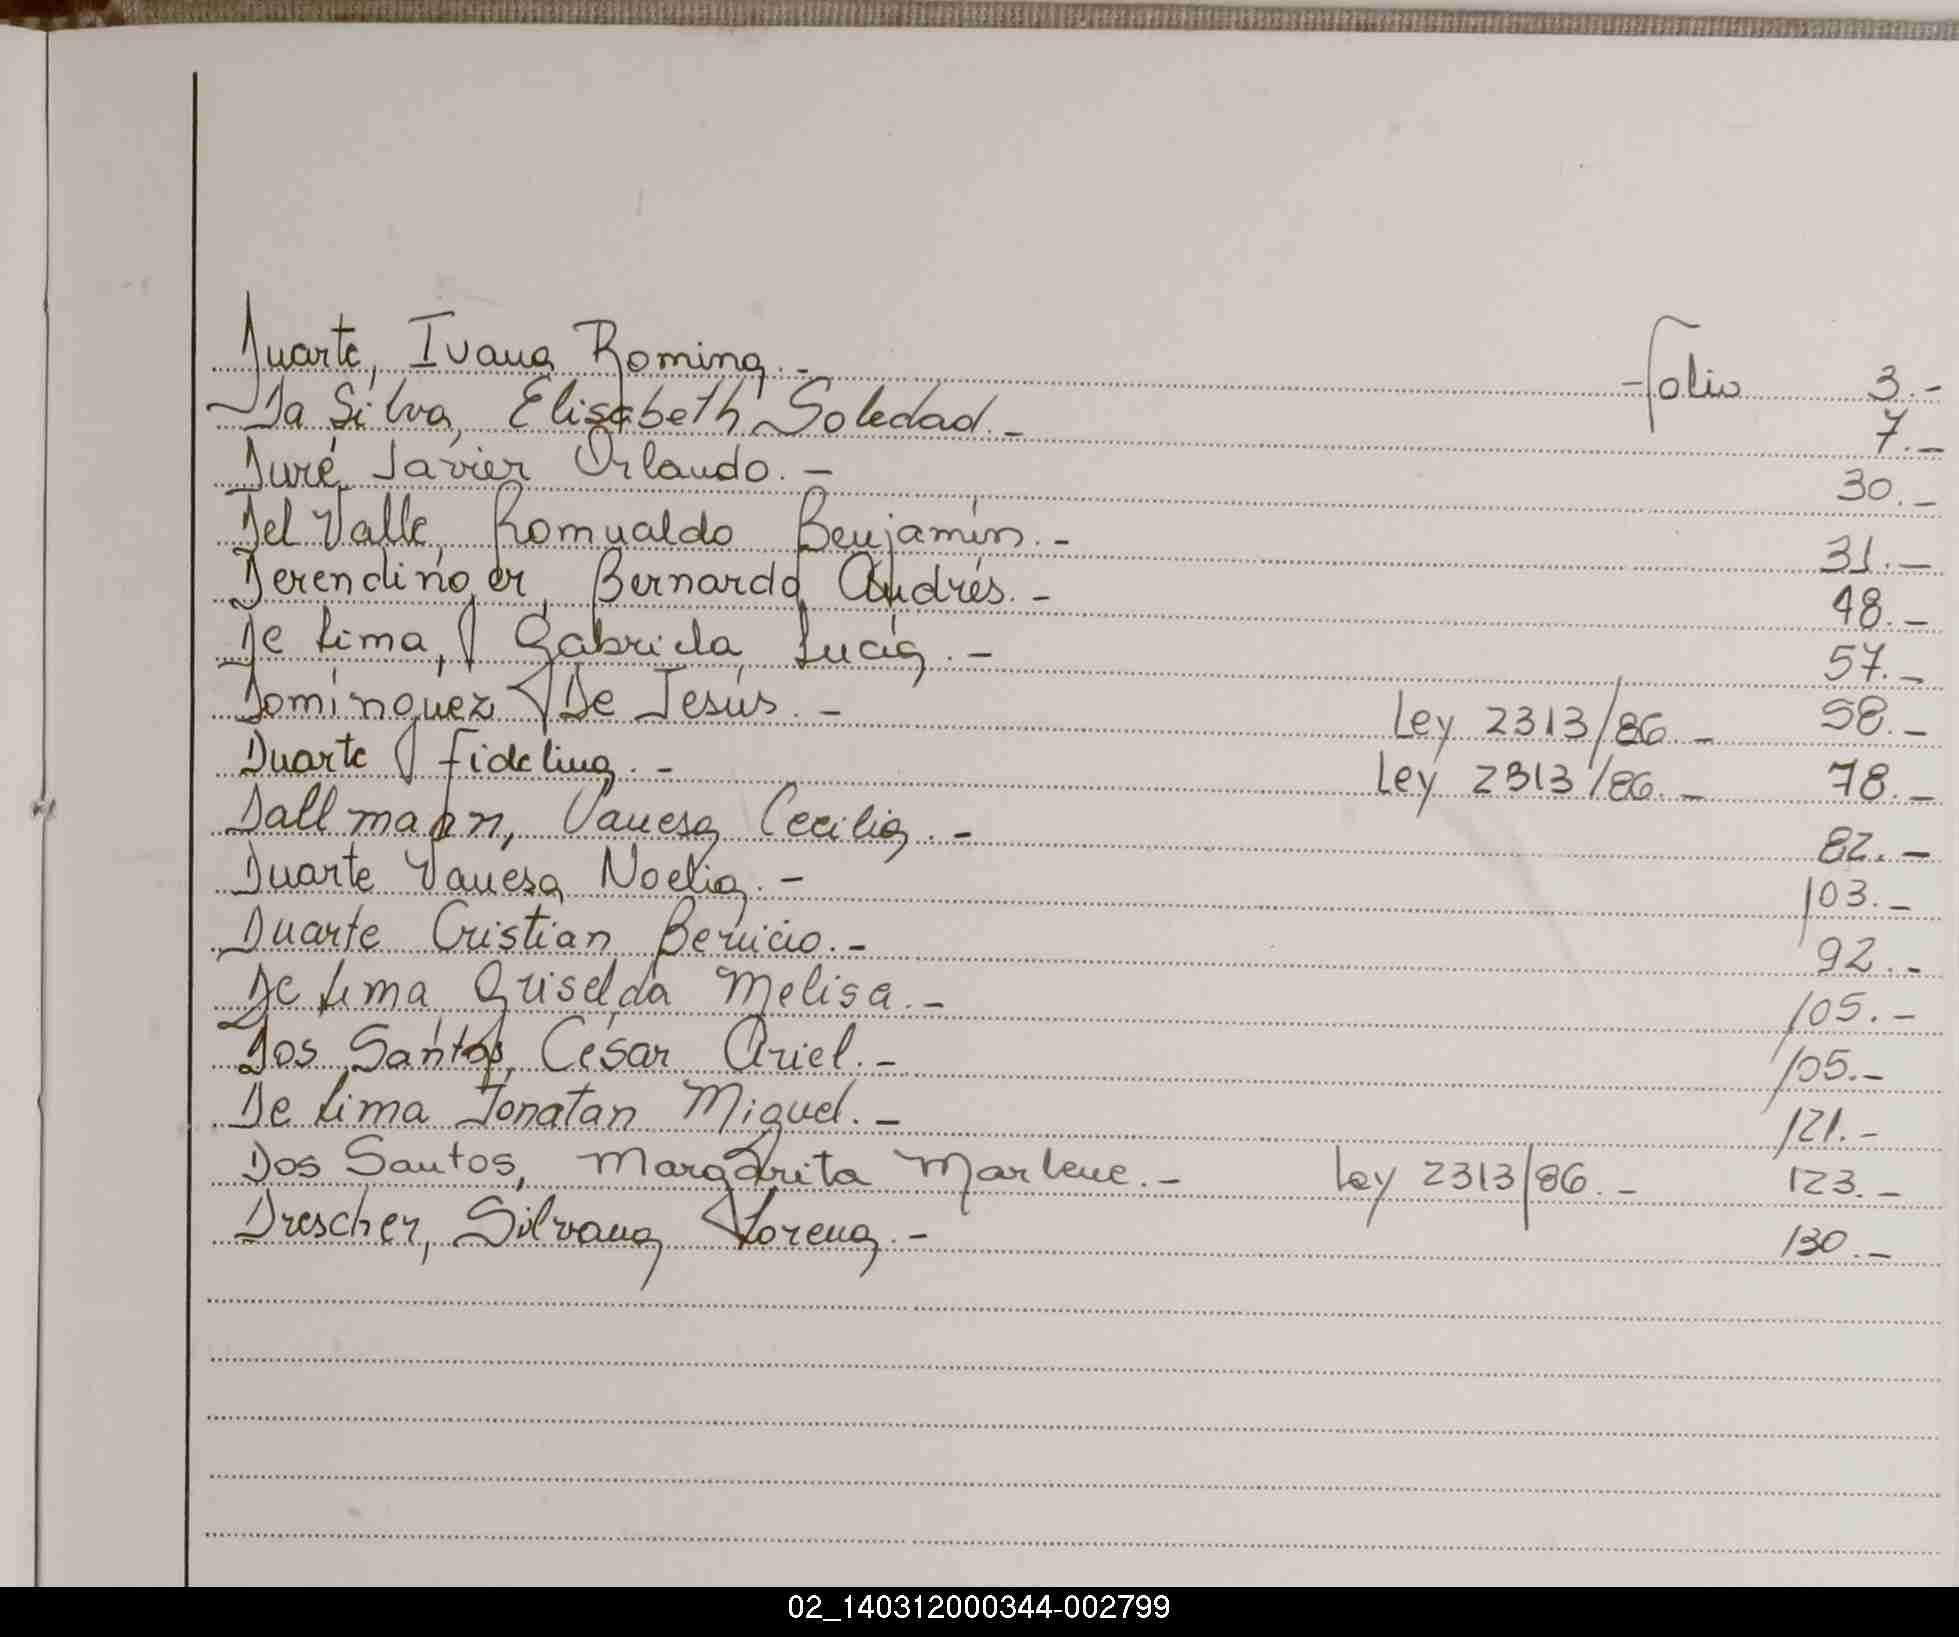 Duarte, Ivana Romina.- Folio 3.-
Da Silva, Elisabeth Soledad.- 7.-
Duré, Javier Orlando.- 30.-
Del Valle, Romualdo Benjamín.- 31.-
Derendinger, Bernardo Andrés.- 48.-
De Lima, Gabriela Lucía.- 57.-
Domínguez De Jesús.- Ley 2313/86.- 58.-
Duarte Fidelina.- Ley 2313/86.- 78.-
Dallmann, Vanesa Cecilia.- 82.-
Duarte Vanesa Noelia.- 103.-
Duarte Cristian Benicio.- 92.-
De Lima Griselda Melisa.- 105.-
Dos Santos, César Ariel.- 105.-
De Lima Jonatan Miguel.- 121.-
Dos Santos, Margarita Marlene.- Ley 2313/86.- 123.-
Drescher, Silvana Lorena.- 130.-
02_140312000344-002799